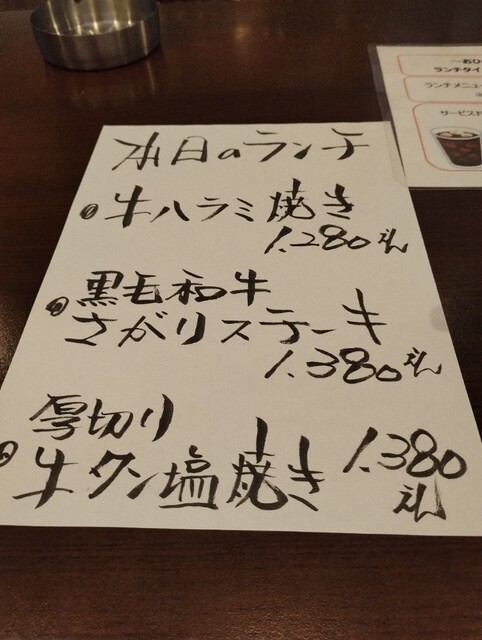 本日のランチ
牛ハラミ焼き
1.280えん
黒毛和牛
さがりステーキ
1.380えん
厚切り
牛タン塩焼き 1.380
えん
ランチタイ
ランチメニュー
サービスド